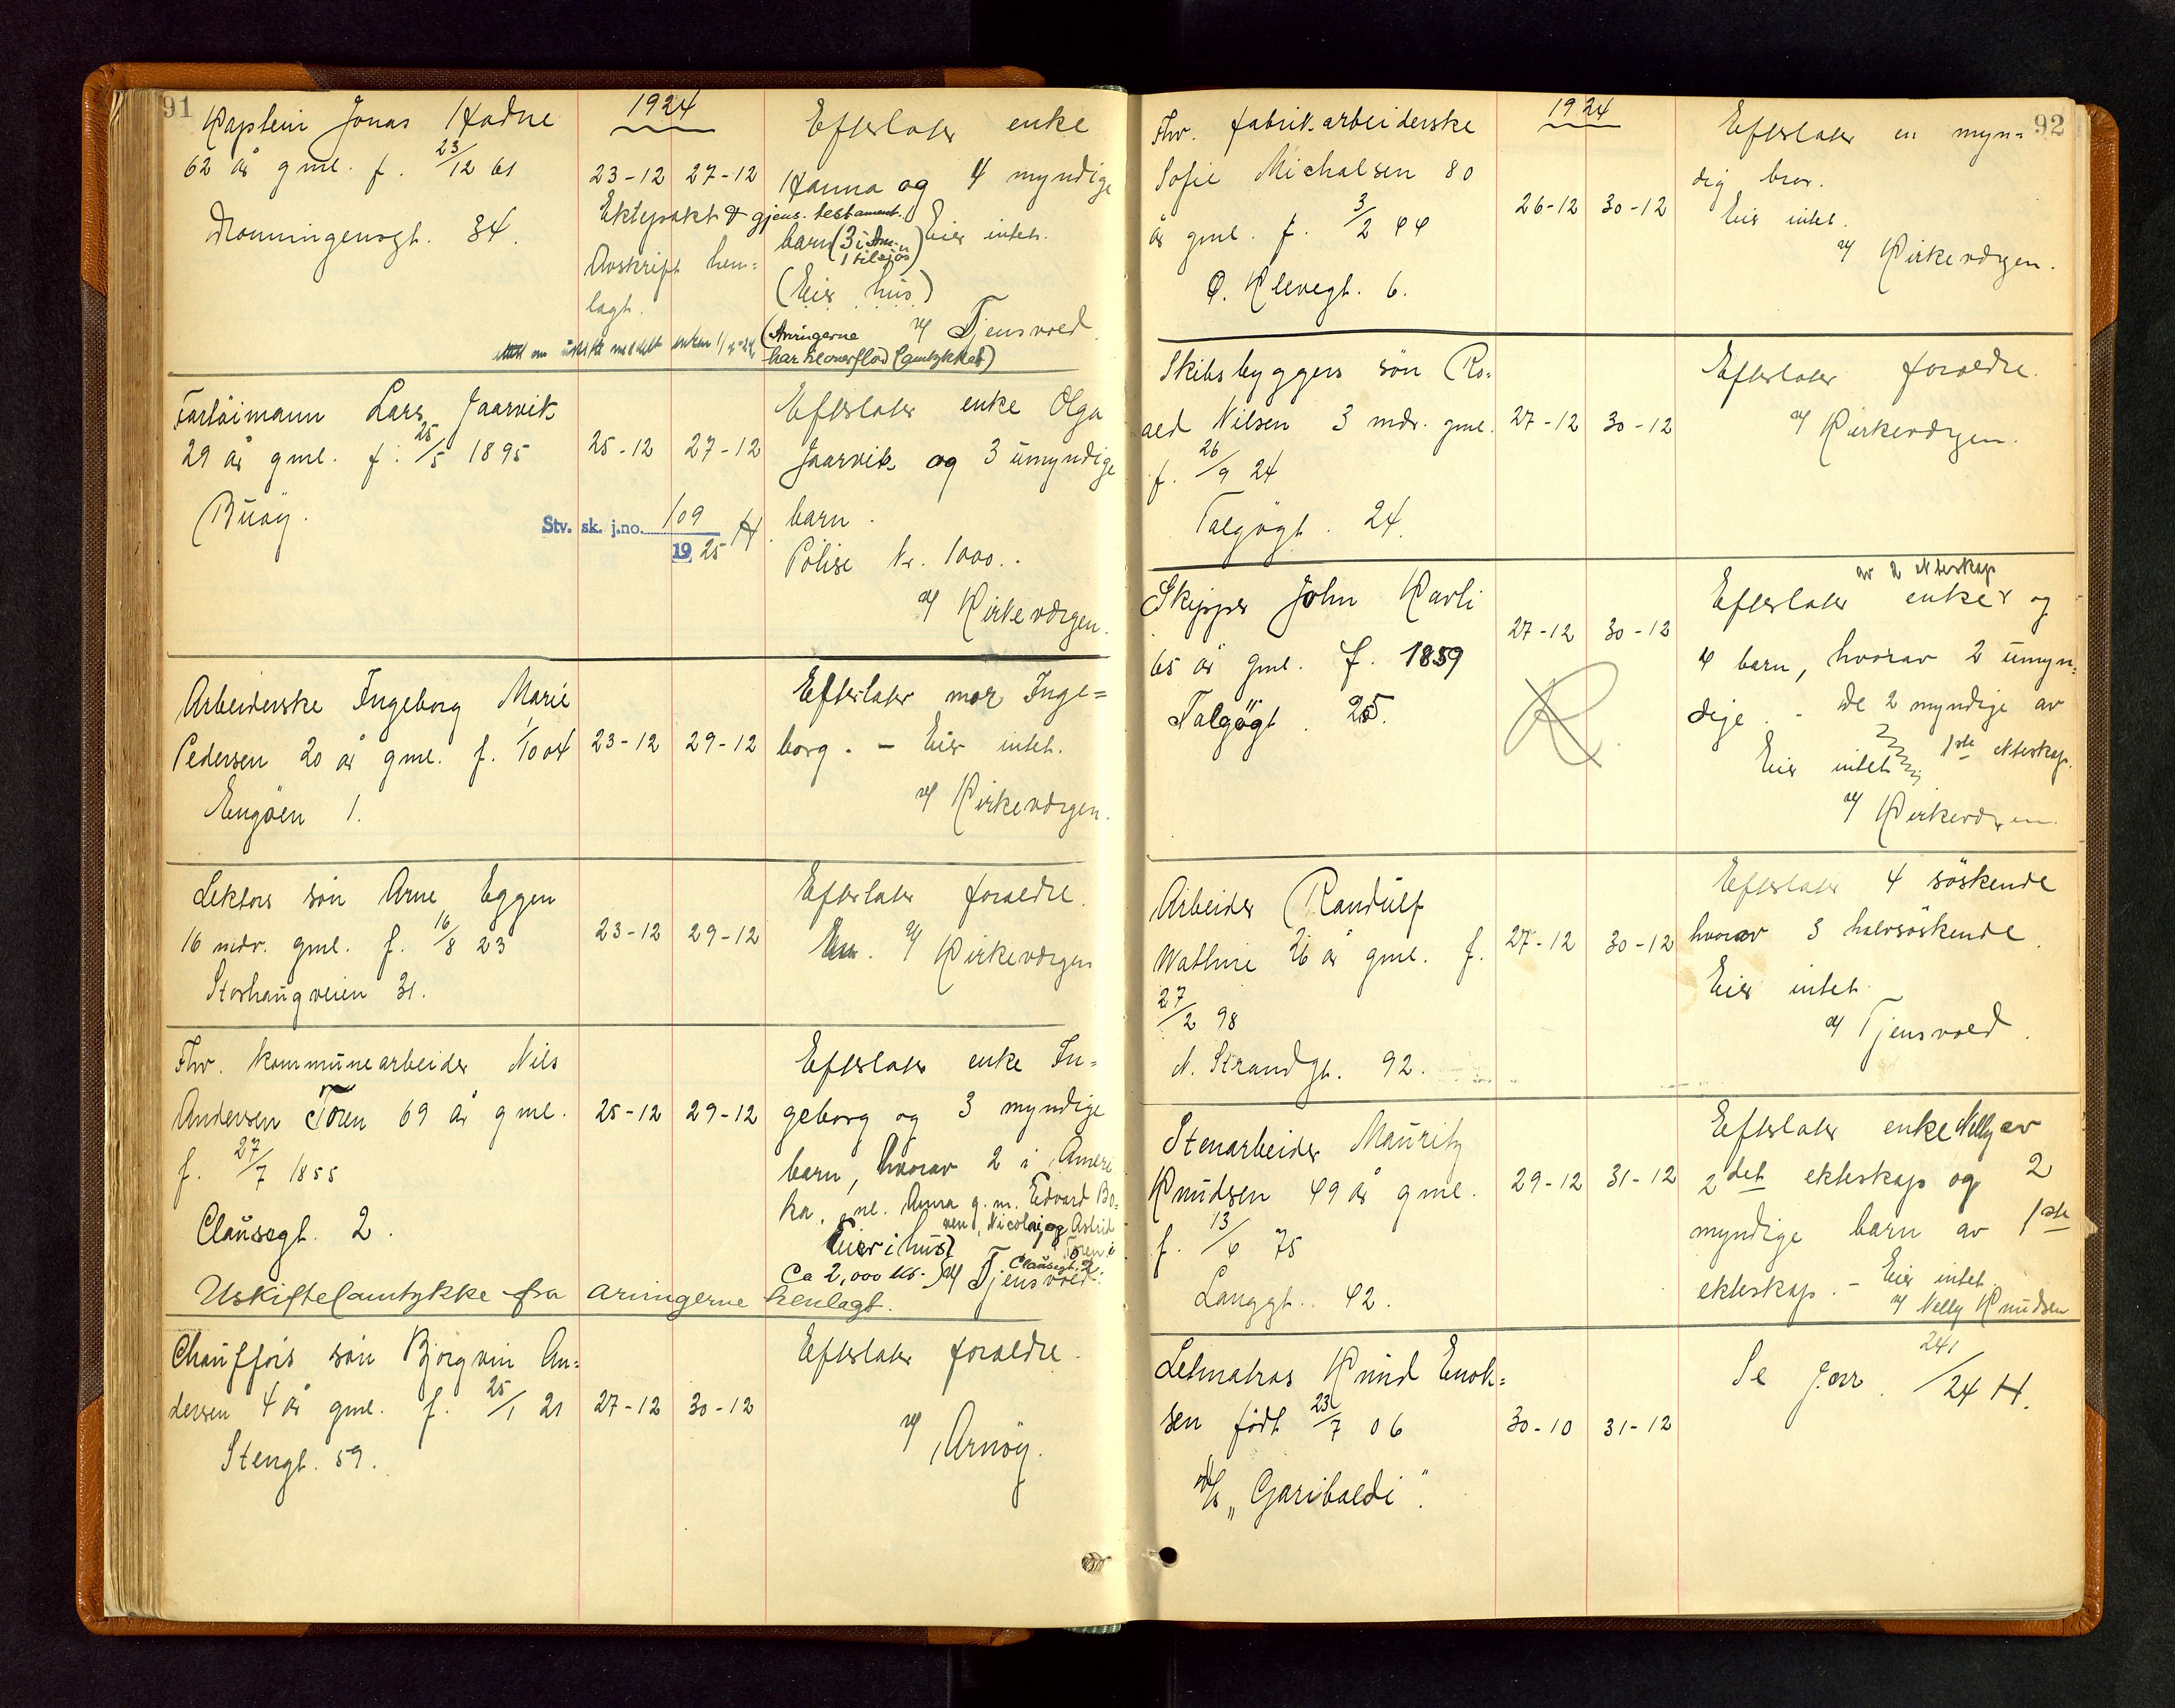 91
Kaptein Jonas Hadne
62 år gml. f. 23/12 61
Dronningensgt. 34.
1924
23-12 27-12
Ektepakt & gjens. testament.
Avskrift hen-
lagt.
Efterlater enke
Hanna og 4 myndige
barn (3 i Am. 1 tilsjøs) Eier intet.
(Eier hus)
(Arvingerne
har
samtykket)
v/ Tjensvold
Fartöimann Lars Jaarvik
29 år gml. f. 25/5 1895
Buöy.
25-12 27-12
Stv. sk. j.no. 109
1925 H.
Efterlater enke Olga
Jaarvik og 3 umyndige
barn.
Polise kr. 1000..
v/ Kirkevergen.
Arbeiderske Ingeborg Marie
Pedersen 20 år gml. f. 1/10 04
Engöen 1.
23-12 29-12
Efterlater mor Inge=
borg. - Eier intet.
v/ Kirkevergen.
Lektors sön Arne Eggen
16 mdr. gml. f. 16/8 23
Storhaugveien 31.
23-12 29-12
Efterlater foraeldre.
v/ Kirkevergen
Fhv. kommunearbeider Nils
Andersen Toren 69 år gml.
f. 27/7 1855
Clausegt. 2.
25-12 29-12
Efterlater enke In=
geborg og 3 myndige
barn, hvorav 2 i Ameri
ka, nl. Anna g.m. Edvard Bo-
ven, Nicolai og Astrid
Toren i
Clausegt. 2.
Eier i hus
Ca 2,000 kr. v/ Tjensvold.
Uskiftesamtykke fra arvingerne henlagt.
Chaufførs sön Bjørgvin An=
dersen 4 år gml. f. 25/1 21
Stengt. 59.
27-12 30-12
Efterlater foraeldre.
v/ Arnöy.
92
Fhv. fabrikarbeiderske
Sofie Michalsen 80
år gml. f. 3/2 44
Ø. Klevegt. 6.
1924
26-12 30-12
Efterlater en myn=
dig bror.
Eier intet.
v/ Kirkevergen.
Skibsbyggers sön Ro=
ald Nilsen 3 mdr. gml.
f. 26/9 24
Talgögt. 24.
27-12 30-12
Efterlater foraeldre.
v/ Kirkevergen.
Skipper John Karli
65 år gml. f. 1859
Talgögt. 25.
27-12 30-12
av 2 ekteskap
Efterlater enke og
4 barn, hvorav 2 umyn=
dige. - De 2 myndige av
1ste ekteskap.
Eier intet
v/ Kirkevergen.
Arbeider Randulf
Wathne 26 år gml. f.
27/2 98
N. Strandgt. 92.
27-12 30-12
Efterlater 4 söskende
hvorav 3 halvsöskende.
Eier intet.
v/ Tjensvold.
Stenarbeider Mauritz
Knudsen 49 år gml.
f. 13/6 75
Langgt. 42.
29-12 31-12
Efterlater enke Nelly av
2det ekteskap og 2
myndige barn av 1ste
ekteskap. - Eier intet.
v/ Nelly Knudsen
Letmatros Knud Enok=
sen født 23/7 06
D/S "Garibaldi".
30-10 31-12
Se Jorr. 241/24 H.